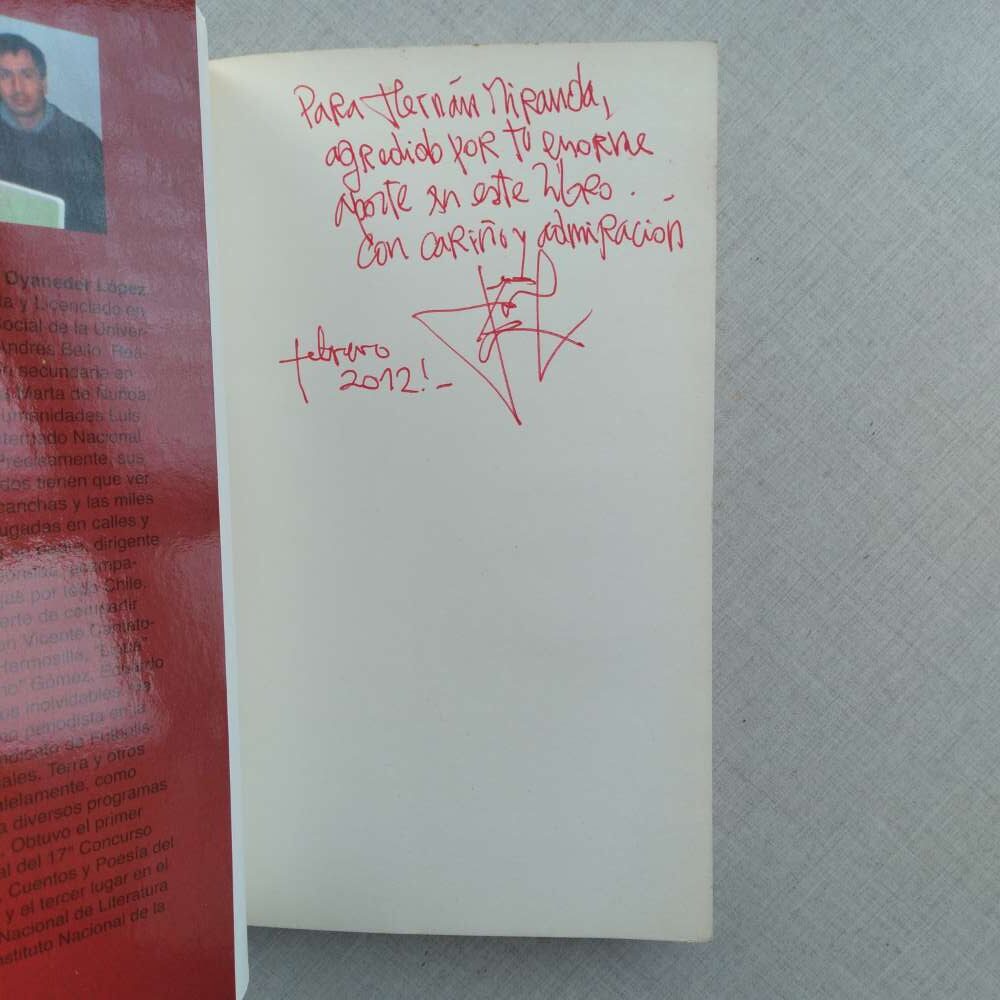 Oyaneder López
a y Licenciado en
ocial de la Univer-
Andrés Bello. Rea-
n secundaria en
Marta de Ñuñoa,
umanidades Luis
ternado Nacional
Precisamente, sus
dos tienen que ver
canchas y las miles
ugadas en calles y
dirigente
acompa-
jes por todo Chile.
erte de compartir
on Vicente Cantato-
Hermosilla,
no" Gómez, Eduardo
os inolvidables
mo periodista en la
ndicato de Futbolis-
ales, Terra y otros
alelamente, como
a diversos programas
. Obtuvo el primer
al del 17° Concurso
Cuentos y Poesía del
y el tercer lugar en el
Nacional de Literatura
nstituto Nacional de la
Para Hernán Miranda,
agredido por tu enorme
aporte en este libro.
Con cariño y admiración
febrero
2012!-